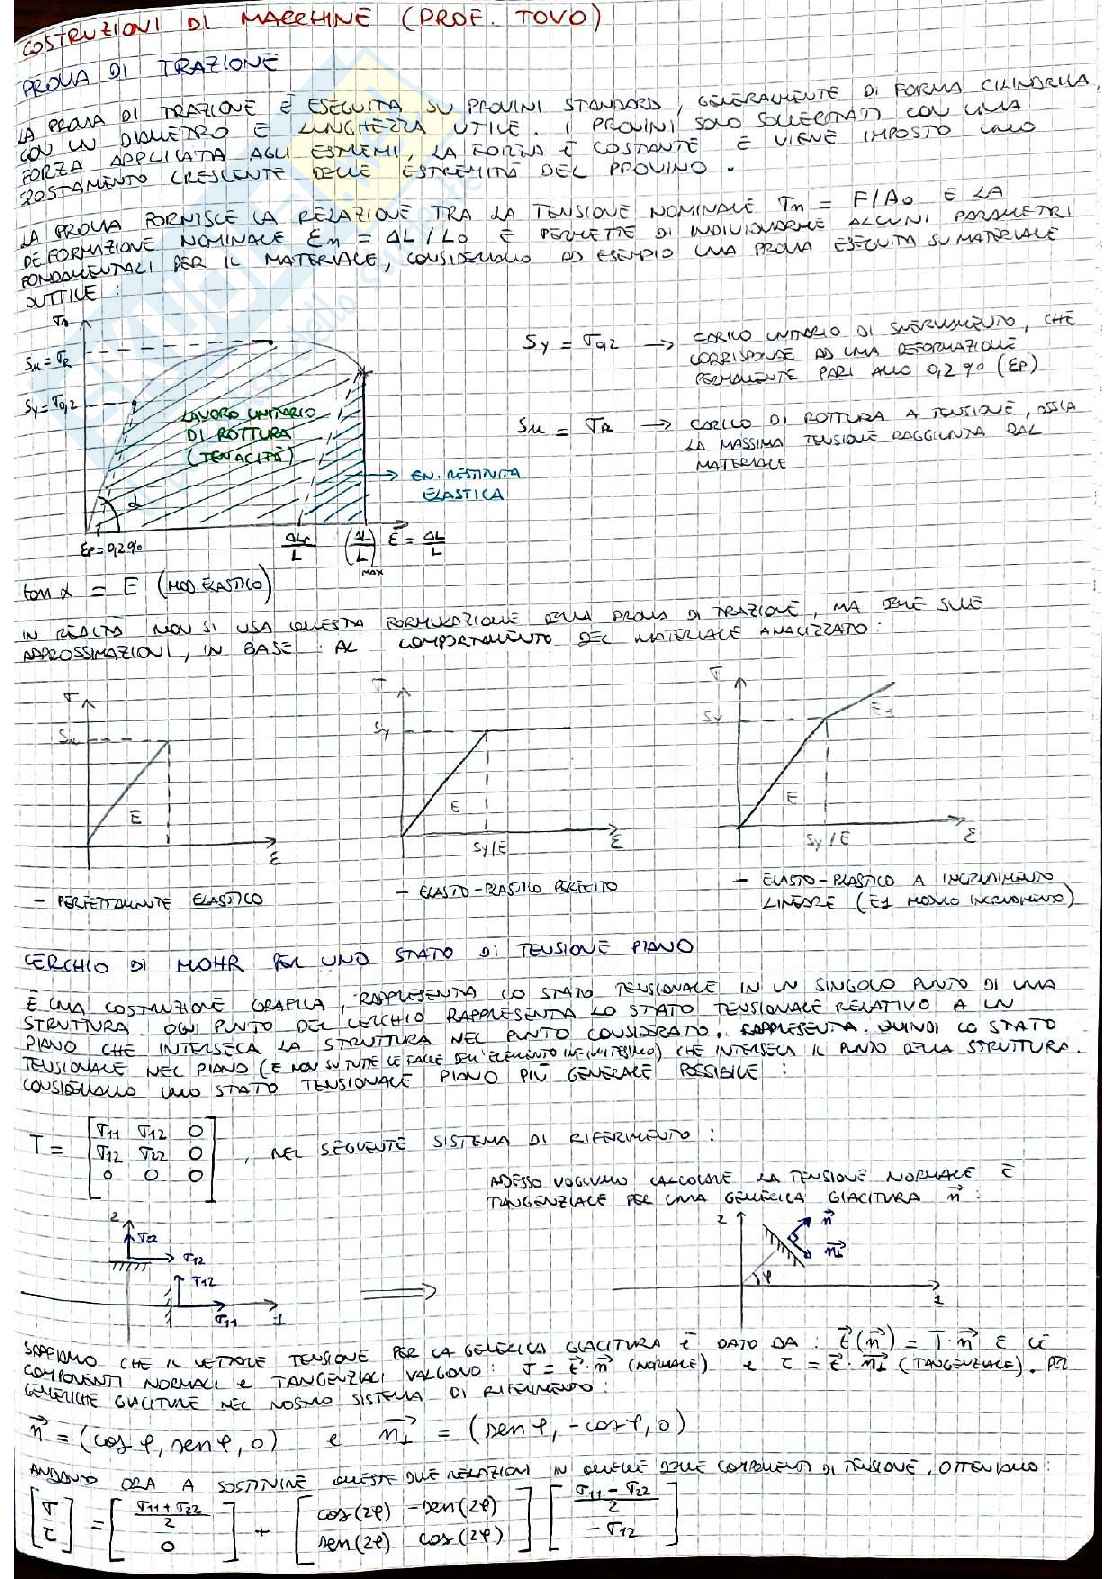 COSTRUZIONI DI MACCHINE (PROF. TOVO)
PROVA DI TRAZIONE
LA PROVA DI TRAZIONE È ESEGUITA SU PROVINI STANDARD, GENERALMENTE DI FORMA CILINDRICA,
CON UN DIAMETRO E LUNGHEZZA UTILE. I PROVINI SONO SOLLECITATI CON UNA
FORZA APPLICATA AGLI ESTREMI, LA FORZA È COSTANTE E VIENE IMPOSTO UNO
SPOSTAMENTO CRESCENTE DELLE ESTREMITÀ DEL PROVINO.
LA PROVA FORNISCE LA RELAZIONE TRA LA TENSIONE NOMINALE σn = F/A0 E LA
DEFORMAZIONE NOMINALE εn = ΔL/L0 E PERMETTE DI INDIVIDUARE ALCUNI PARAMETRI
FONDAMENTALI PER IL MATERIALE, CONSIDERIAMO AD ESEMPIO UNA PROVA ESEGUITA SU MATERIALE
DUTTILE:
σn
Su = σR
Sy = σ0,2
LAVORO UNITARIO
DI ROTTURA
(TENACITÀ)
EN. RESTITUITA
ELASTICA
α
εp = 0,2%
L
(ΔL/L)MAX
ε = ΔL/L
Sy = σ0,2 → CARICO UNITARIO DI SNERVAMENTO, CHE
CORRISPONDE AD UNA DEFORMAZIONE
PERMANENTE PARI ALLO 0,2% (εp)
Su = σR → CARICO DI ROTTURA A TENSIONE, OSSIA
LA MASSIMA TENSIONE RAGGIUNTA DAL
MATERIALE
tan α = E (MOD. ELASTICO)
IN REALTÀ NON SI USA QUESTA FORMULAZIONE DELLA PROVA DI TRAZIONE, MA DELLE SUE
APPROSSIMAZIONI, IN BASE AL COMPORTAMENTO DEL MATERIALE ANALIZZATO:
σ
Su
E
ε
- PERFETTAMENTE ELASTICO
σ
Sy
E
Sy/E
ε
- ELASTO-PLASTICO PERFETTO
σ
Sy
E1
E
Sy/E
ε
- ELASTO-PLASTICO A INCRUDIMENTO
LINEARE (E1 MODULO INCRUDIMENTO)
CERCHIO DI MOHR PER UNO STATO DI TENSIONE PIANO
È UNA COSTRUZIONE GRAFICA, RAPPRESENTA LO STATO TENSIONALE IN UN SINGOLO PUNTO DI UNA
STRUTTURA. OGNI PUNTO DEL CERCHIO RAPPRESENTA LO STATO TENSIONALE RELATIVO A UN
PIANO CHE INTERSECA LA STRUTTURA NEL PUNTO CONSIDERATO. RAPPRESENTA QUINDI LO STATO
TENSIONALE NEL PIANO (E NON SU TUTTE LE FACCE DELL'ELEMENTO INFINITESIMO) CHE INTERSECA IL PUNTO DELLA STRUTTURA.
CONSIDERIAMO UNO STATO TENSIONALE PIANO PIÙ GENERALE POSSIBILE:
T = [σ11 σ12 0
σ12 σ22 0
0 0 0], NEL SEGUENTE SISTEMA DI RIFERIMENTO:
ADESSO VOGLIAMO CALCOLARE LA TENSIONE NORMALE E
TANGENZIALE PER UNA GENERICA GIACITURA n⃗:
2
σ22
σ12
σ12
σ11
1
2
n⃗
n⃗⊥
φ
1
SAPPIAMO CHE IL VETTORE TENSIONE PER LA GENERICA GIACITURA È DATO DA: t⃗(n⃗) = T·n⃗ E LE
COMPONENTI NORMALI e TANGENZIALI VALGONO: σ = t⃗·n⃗ (NORMALE) e τ = t⃗·n⃗⊥ (TANGENZIALE). PER
GENERICHE GIACITURE NEL NOSTRO SISTEMA DI RIFERIMENTO:
n⃗ = (cos φ, sen φ, 0) e n⃗⊥ = (sen φ, -cos φ, 0)
ANDANDO ORA A SOSTITUIRE QUESTE DUE RELAZIONI IN QUELLE DELLE COMPONENTI DI TENSIONE, OTTENIAMO:
[σ τ] = [(σ11+σ22)/2 0] + [cos(2φ) -sen(2φ) sen(2φ) cos(2φ)] [(σ11-σ22)/2 -σ12]